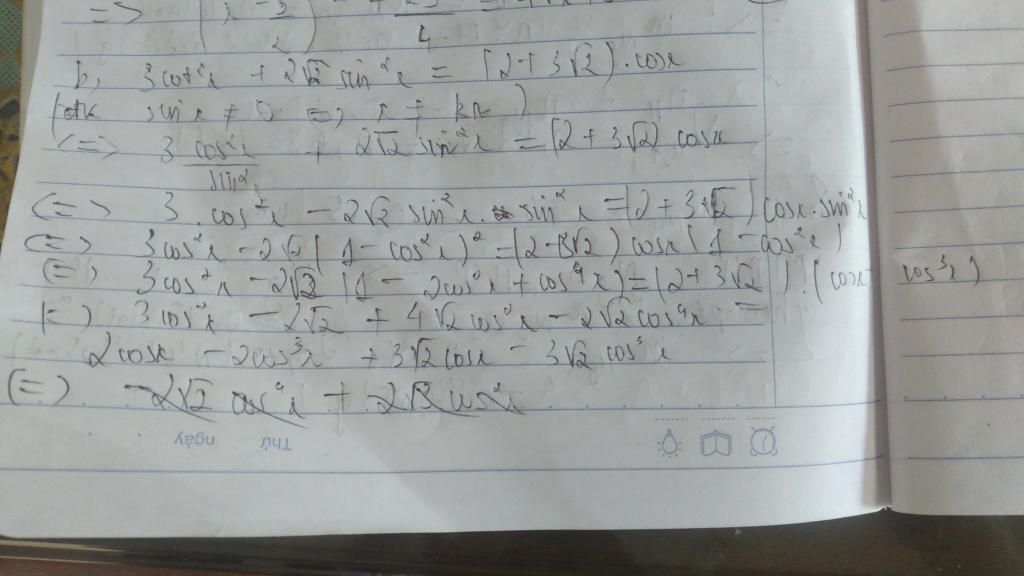 b, 3cot²x + 2√2 sin²x = (2 + 3√2).cosx
sinx ≠ 0 => x ≠ kπ )
<=> 3 cos²x/sin² + 2√2 sin²x = (2 + 3√2) cosx
<=> 3.cos²x - 2√2 sin²x. sin²x = (2 + 3√2) cosx.sin²x
<=> 3cos²x - 2√2 (1 - cos²x)² = (2 + 3√2) cosx (1 - cos²x)
<=> 3cos²x - 2√2 (1 - 2cos²x + cos⁴x) = (2 + 3√2).(cosx - cos³x)
<=> 3cos²x - 2√2 + 4√2cos²x - 2√2cos⁴x =
2cosx - 2cos³x + 3√2cosx - 3√2 cos³x
<=> - 2√2 cos⁴x +
Thứ
ngày